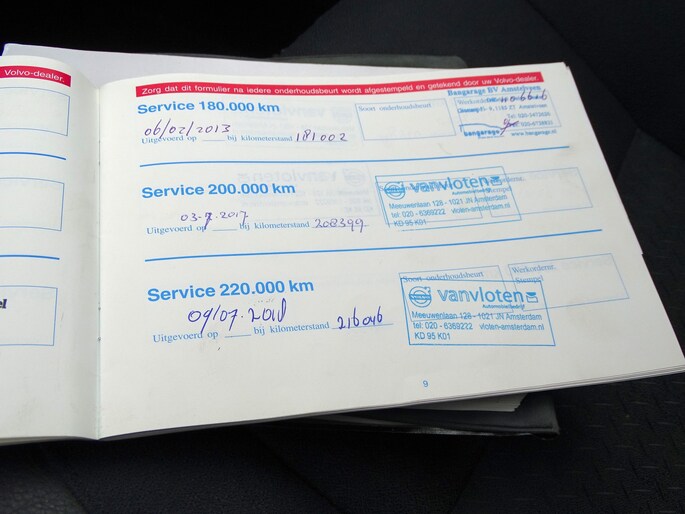 Volvo-dealer.
Zorg dat dit formulier na iedere onderhoudsbeurt wordt afgestempeld en getekend door uw Volvo-dealer.
Service 180.000 km
Soort onderhoudsbeurt
Bangarage BV Amstelveen
06/02/2013
Uitgevoerd op ____ bij kilometerstand 181002
bangarage
www.bangarage.nl
Service 200.000 km
vanvloten
Meeuwenlaan 128 - 1021 JN Amsterdam
tel: 020 - 6369222 vloten-amsterdam.nl
KD 95 K01
03-7-2017
Uitgevoerd op ____ bij kilometerstand 208399
Service 220.000 km
Soort onderhoudsbeurt
Werkordernr.
Stempel
vanvloten
Meeuwenlaan 128 - 1021 JN Amsterdam
tel: 020 - 6369222 vloten-amsterdam.nl
KD 95 K01
09/07-2018
Uitgevoerd op ____ bij kilometerstand 216046
9